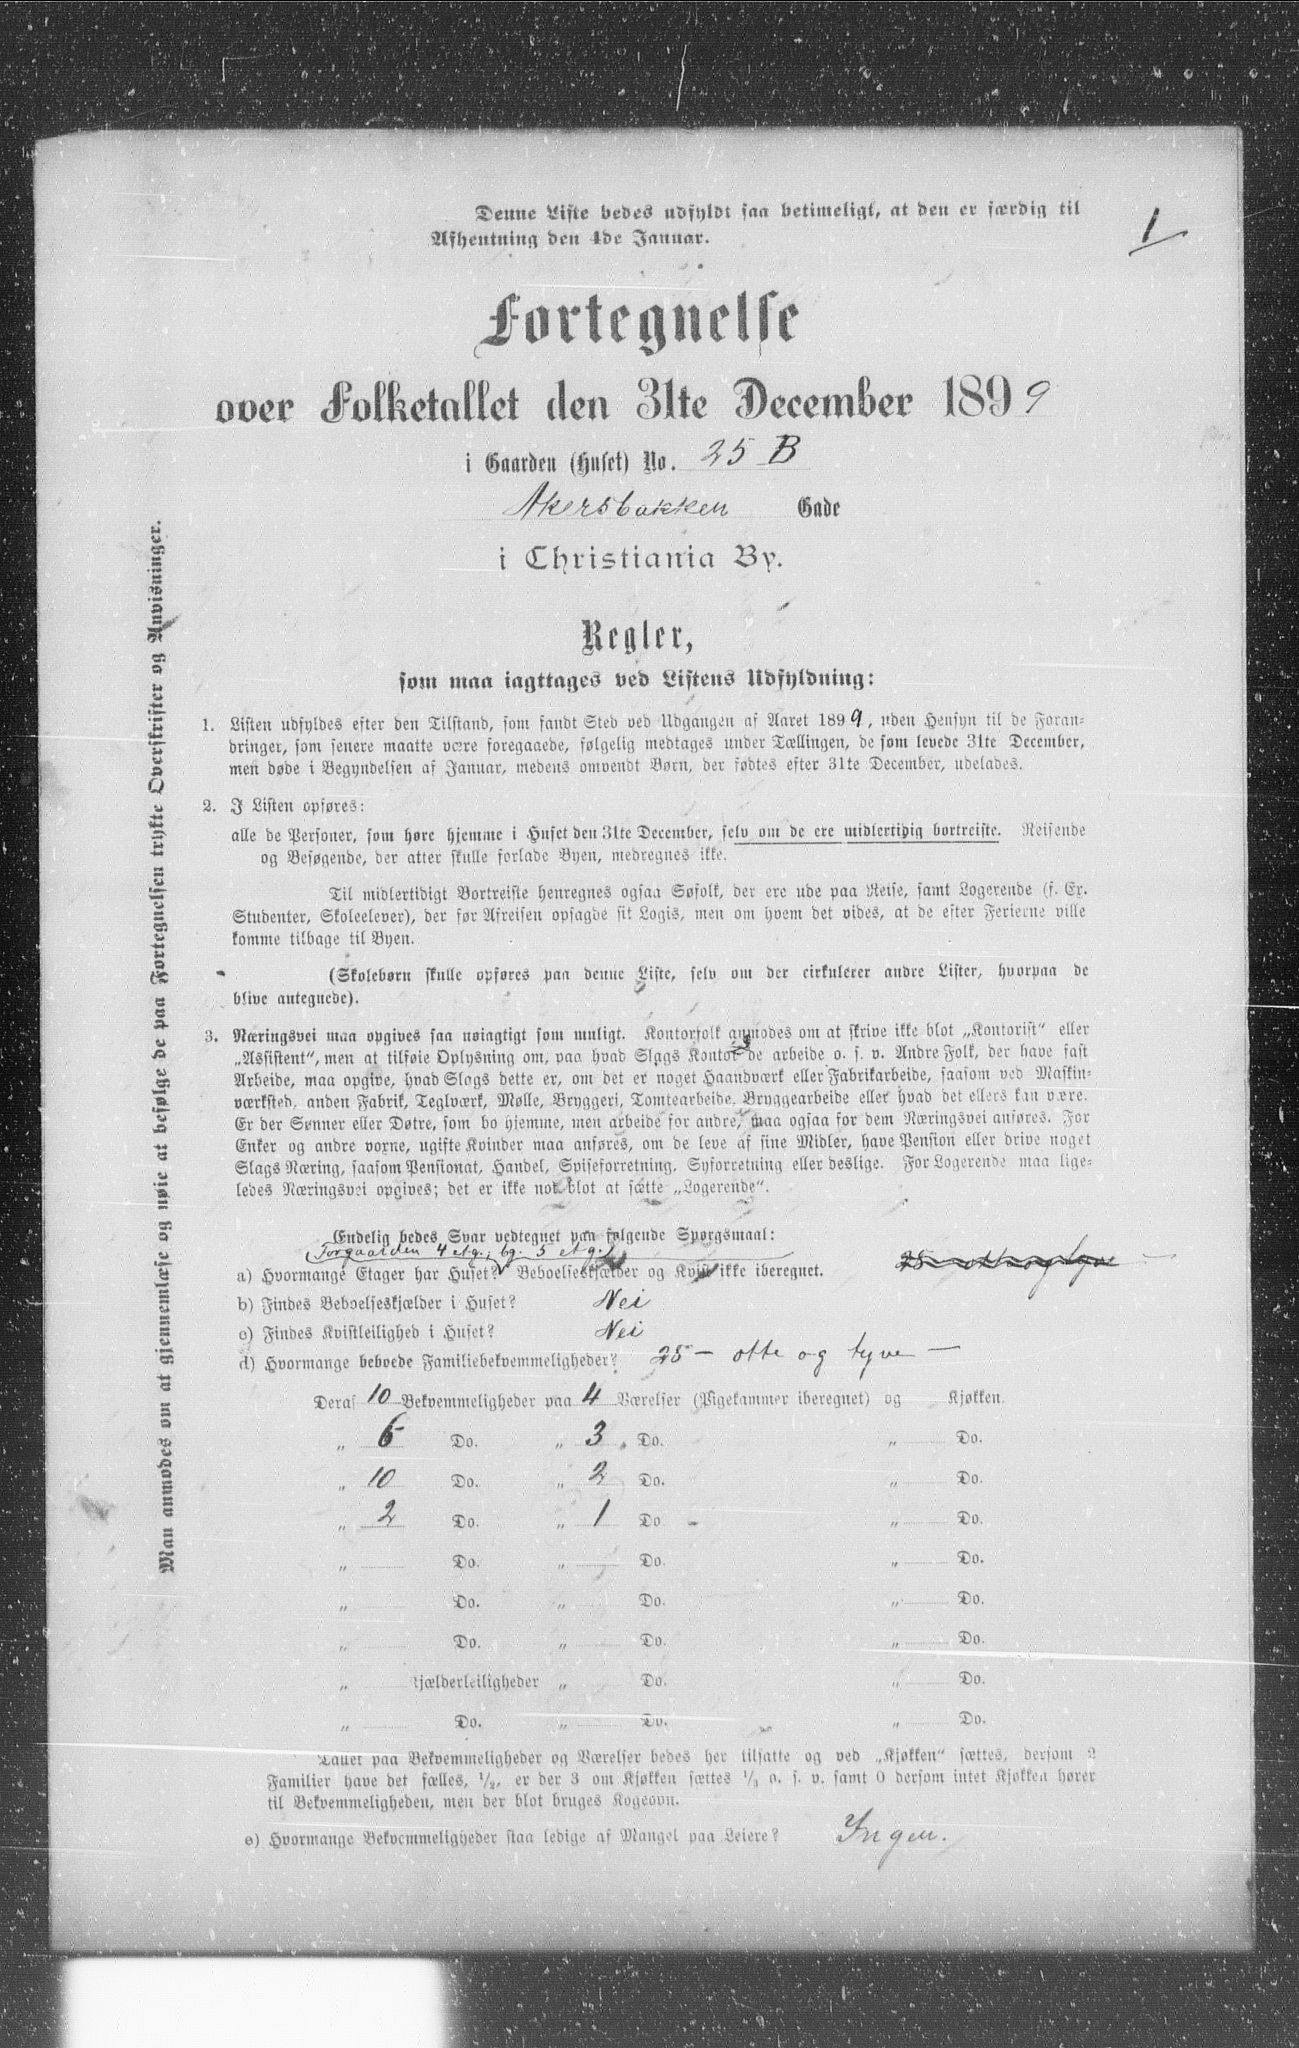 Denne Liste bedes udfyldt saa betimeligt, at den er færdig til
Afhentning den 4de Januar.
1
Fortegnelse
over Folketallet den 31te December 1899
i Gaarden (Huset) No. 25 B
Akersbakken Gade
i Christiania By.
Regler,
som maa iagttages ved Listens Udfyldning:
1. Listen udfyldes efter den Tilstand, som fandt Sted ved Udgangen af Aaret 1899, uden Hensyn til de Foran-
dringer, som senere maatte være foregaaede, følgelig medtages under Tællingen, de som levede 31te December,
men døde i Begyndelsen af Januar, medens omvendt Børn, der fødtes efter 31te December, udelades.
2. I Listen opføres:
alle de Personer, som høre hjemme i Huset den 31te December, selv om de ere midlertidig bortreiste. Reisende
og Besøgende, der atter skulle forlade Byen, medregnes ikke.
Til midlertidigt Bortreiste henregnes ogsaa Søfolk, der ere ude paa Reise, samt Logerende (f. Ex.
Studenter, Skoleelever), der før Afreisen opsagde sit Logis, men om hvem det vides, at de efter Ferierne ville
komme tilbage til Byen.
(Skolebørn skulle opføres paa denne Liste, selv om der cirkulerer andre Lister, hvorpaa de
blive antegnede).
3. Næringsvei maa opgives saa nøiagtigt som muligt. Kontorfolk anmodes om at skrive ikke blot „Kontorist“ eller
„Assistent“, men at tilføie Oplysning om, paa hvad Slags Kontor de arbeide o. s. v. Andre Folk, der have fast
Arbeide, maa opgive, hvad Slags dette er, om det er noget Haandværk eller Fabrikarbeide, saasom ved Maskin-
værksted, anden Fabrik, Teglværk, Mølle, Bryggeri, Tomtearbeide, Bryggearbeide eller hvad det ellers kan være.
Er der Sønner eller Døtre, som bo hjemme, men arbeide for andre, maa ogsaa for dem Næringsvei anføres. For
Enker og andre voxne, ugifte Kvinder maa anføres, om de leve af sine Midler, have Pension eller drive noget
Slags Næring, saasom Pensionat, Handel, Spiseforretning, Syforretning eller deslige. For Logerende maa lige-
ledes Næringsvei opgives; det er ikke nok blot at sætte „Logerende“.
Endelig bedes Svar vedtegnet paa følgende Spørgsmaal:
(Forgaarden 4 etg.; bg. 5 etg.)
a) Hvormange Etager har Huset? Beboelseskjælder og Kvist ikke iberegnet. 28 otte og tyve
b) Findes Beboelseskjælder i Huset? Nei
c) Findes Kvistleilighed i Huset? Nei
d) Hvormange beboede Familiebekvemmeligheder? 28 — otte og tyve —
Deraf 10 Bekvemmeligheder paa 4 Værelser (Pigekammer iberegnet) og Kjøkken.
„ 6 Do. „ 3 Do. „ Do.
„ 10 Do. „ 2 Do. „ Do.
„ 2 Do. „ 1 Do „ Do.
„ Do. „ Do. „ Do.
„ Do. „ Do. „ Do.
„ Do. „ Do. „ Do.
„ Kjælderleiligheder „ Do. „ Do.
„ Do. „ Do. „ Do.
Tallet paa Bekvemmeligheder og Værelser bedes her tilsatte og ved „Kjøkken“ sættes, dersom 2
Familier have det fælles, 1/2, er der 3 om Kjøkken sættes 1/3 o. s. v. samt 0 dersom intet Kjøkken hører
til Bekvemmeligheden, men der blot bruges Kogeovn.
e) Hvormange Bekvemmeligheder staa ledige af Mangel paa Leiere? Ingen.
Man anmodes om at gjennemlæse og nøie at befølge de paa Fortegnelsen trykte Overskrifter og Anvisninger.